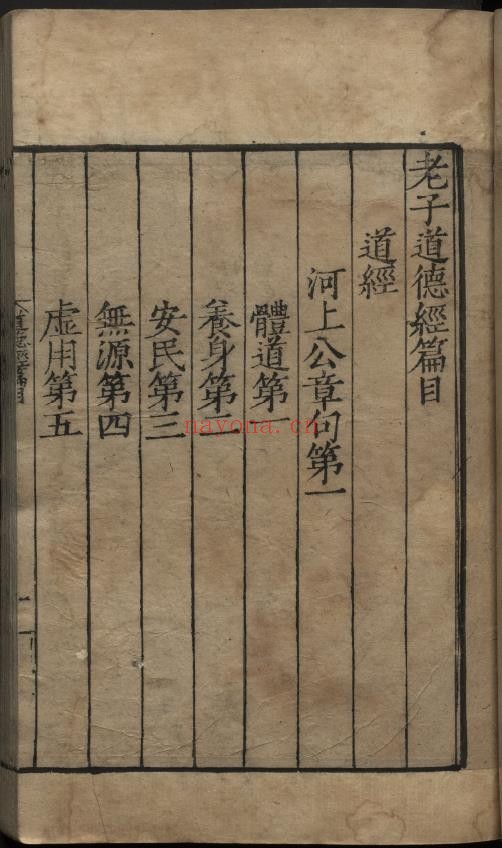 老子道德經篇目
道經
河上公章句第一
體道第一
養身第二
安民第三
無源第四
虛用第五
nayona.cn